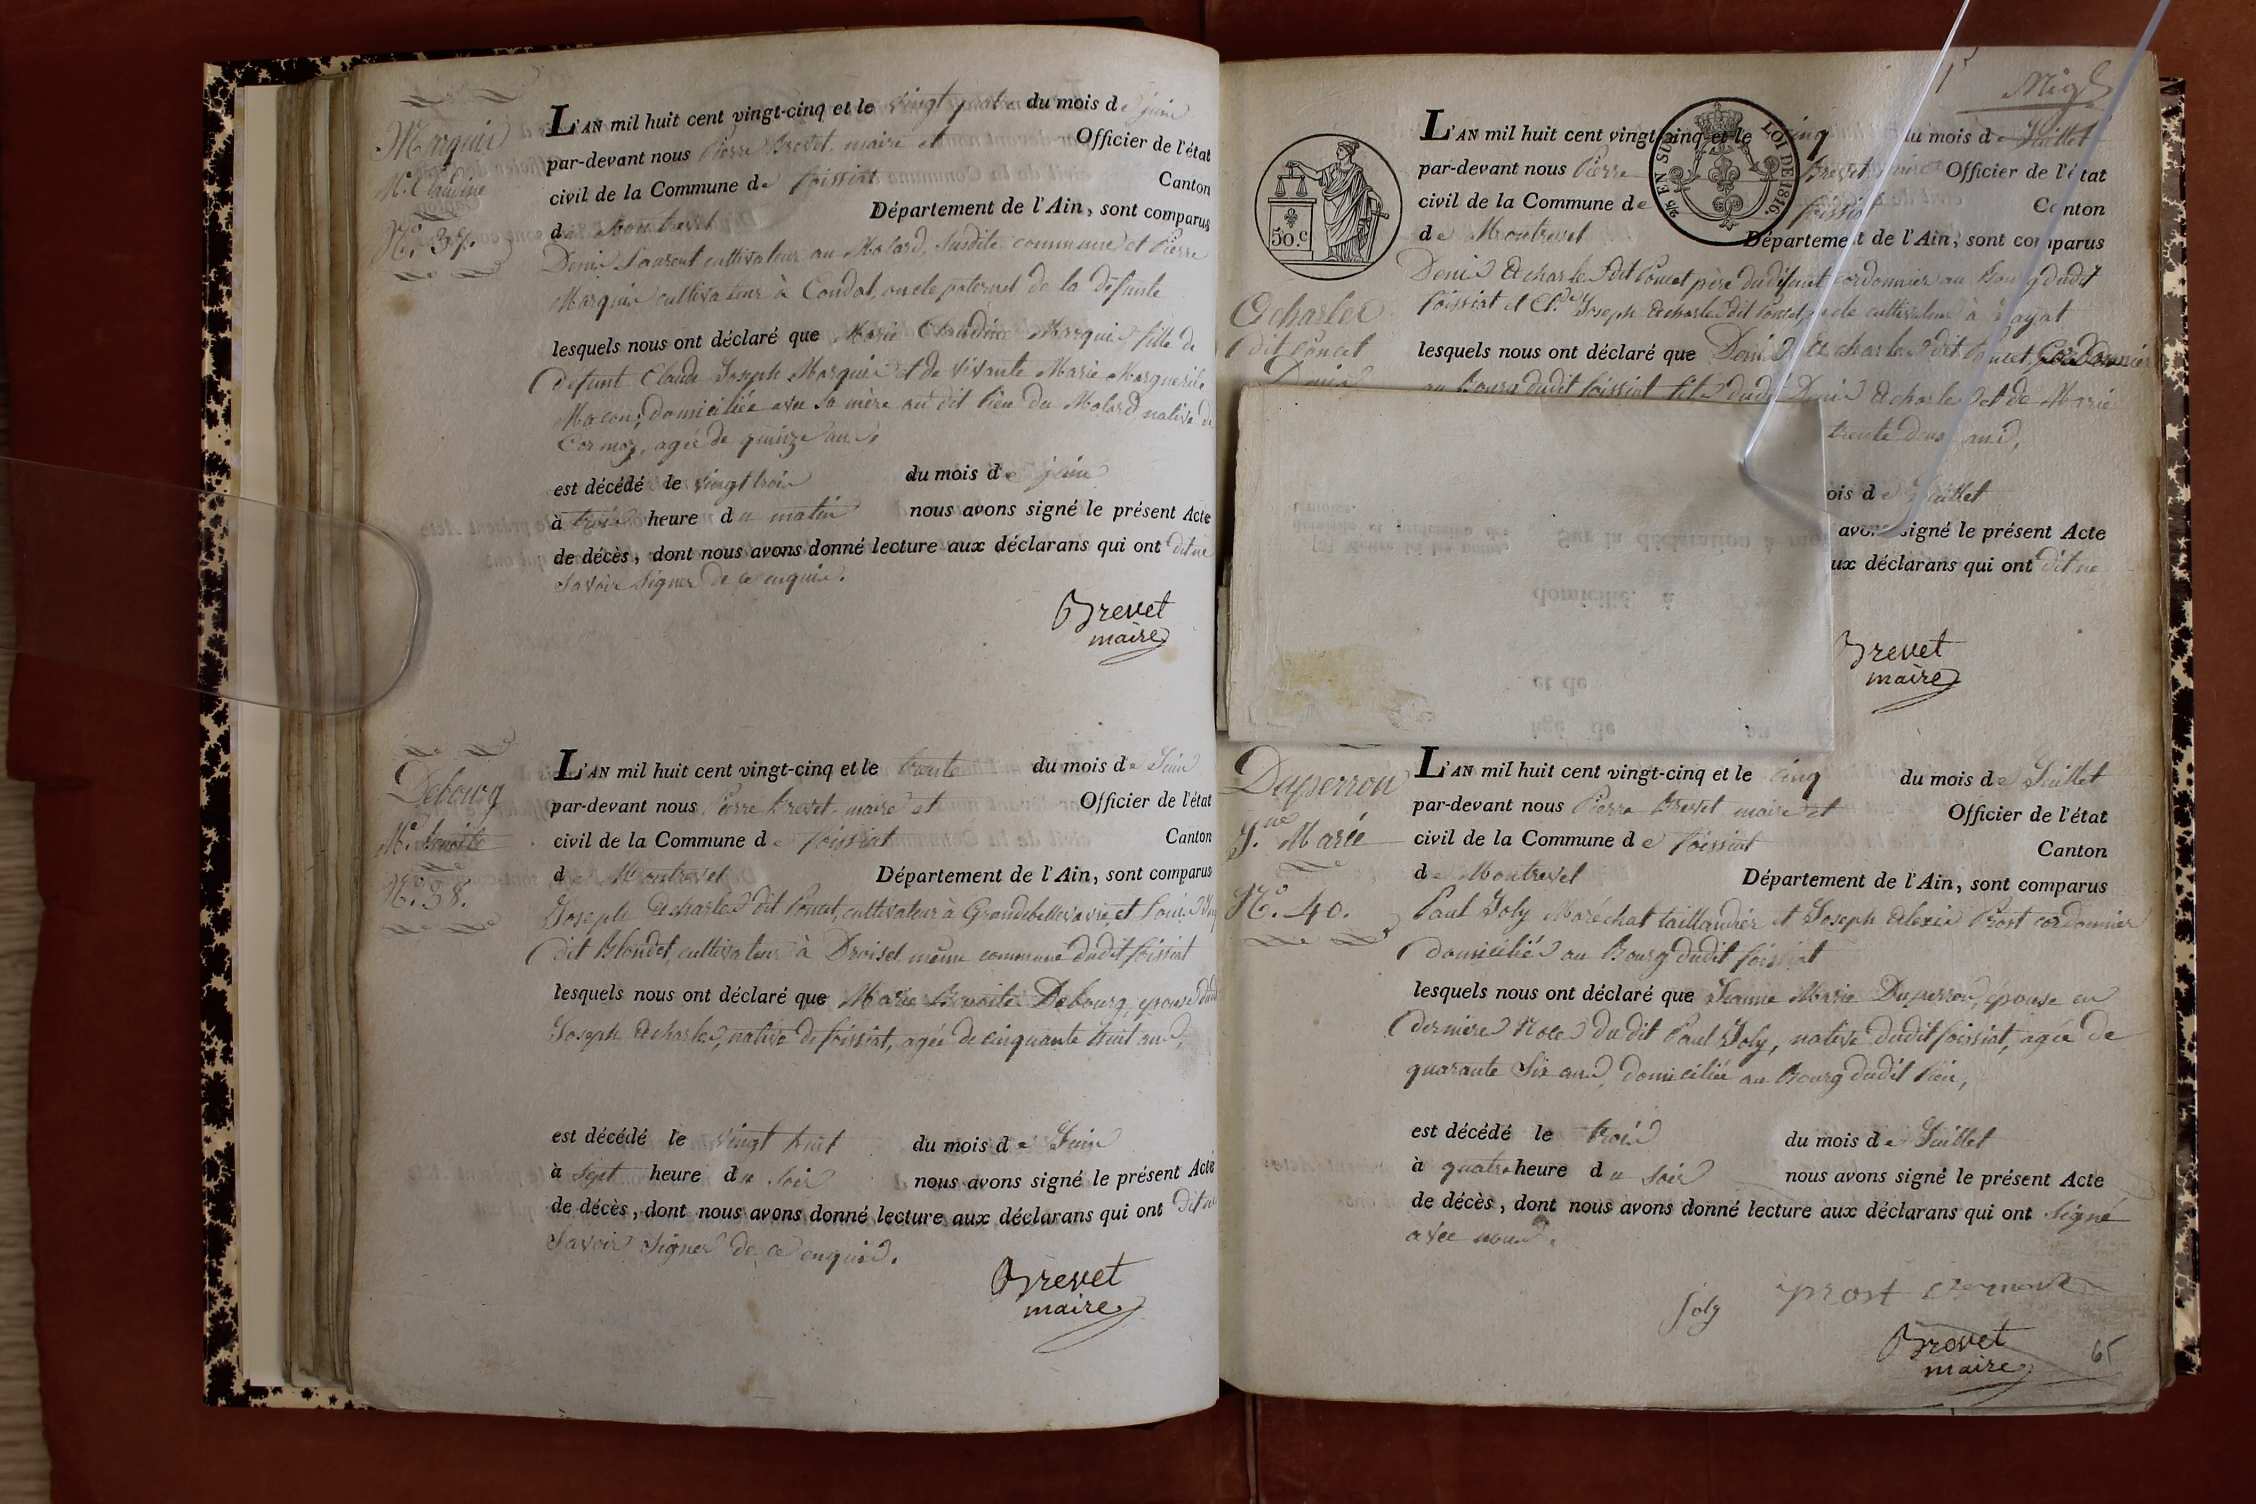 Marquis
Mie. Claudine
No. 37.
L'AN mil huit cent vingt-cinq et le vingt quatre du mois de juin
par-devant nous Pierre Brevet, maire et Officier de l'état
civil de la Commune de foissiat Canton
de Montrevel Département de l'Ain, sont comparus
Denis Laurent cultivateur au Molard, susdite commune et Pierre
Marquis cultivateur à Condal, oncle paternel de la défunte
lesquels nous ont déclaré que Marie Claudine Marquis fille de
défunt Claude Joseph Marquis et de vivante Marie Marguerite
Macon, domiciliée avec sa mère au dit lieu du Molard native de
Cormoz, agée de quinze ans
est décédé le vingt trois du mois de juin
à trois heure du matin nous avons signé le présent Acte
de décès, dont nous avons donné lecture aux déclarans qui ont dit ne
savoir signer de ce enquis.
Brevet
maire
Debourg
Mie. Benoite
No. 38.
L'AN mil huit cent vingt-cinq et le trente du mois de Juin
par-devant nous Pierre brevet, maire et Officier de l'état
civil de la Commune de foissiat Canton
de Montrevel Département de l'Ain, sont comparus
Joseph Echarles dit Poncet, cultivateur à Grandebellevavre, et Louis
dit Blondet, cultivateur à Droiset même commune dudit foissiat
lesquels nous ont déclaré que Marie Benoite Debourg, épouse dudit
Joseph Echarles, native de foissiat, agée de cinquante huit ans,
est décédé le vingt huit du mois de Juin
à sept heure du soir nous avons signé le présent Acte
de décès, dont nous avons donné lecture aux déclarans qui ont dit ne
savoir signer de ce enquis.
Brevet
maire
50.c
EN SUS LOI DE 1816.
L'AN mil huit cent vingt-cinq et le cinq du mois de Juillet
par-devant nous Pierre Brevet maire Officier de l'état
civil de la Commune de foissiat Canton
de Montrevel Département de l'Ain, sont comparus
Denis Echarles dit Poncet père du défunt cordonnier au Bourg dudit
foissiat et Cl.de Joseph Echarles dit Poncet, oncle cultivateur à
Echarles
dit Poncet
Denis
lesquels nous ont déclaré que Denis Echarles dit Poncet, Cordonnier
au bourg dudit foissiat fils dudit Denis Echarles et de Marie
trente deux ans,
ois de Juillet
avons signé le présent Acte
ux déclarans qui ont dit ne
Sur la déclaration à moi
domicilié à
et de
Brevet
maire
Duperron
Jne. Marie
No. 40.
L'AN mil huit cent vingt-cinq et le cinq du mois de Juillet
par-devant nous Pierre Brevet maire et Officier de l'état
civil de la Commune de foissiat Canton
de Montrevel Département de l'Ain, sont comparus
Paul Joly Maréchal taillandier et Joseph Alexis Prost cordonnier
domiciliés au Bourg dudit foissiat
lesquels nous ont déclaré que Jeanne Marie Duperron, épouse en
dernière Noces du dit Paul Joly, native dudit foissiat, agée de
quarante six ans, domiciliée au Bourg dudit lieu,
est décédé le trois du mois de Juillet
à quatre heure du soir nous avons signé le présent Acte
de décès, dont nous avons donné lecture aux déclarans qui ont signé
avec nous.
Joly prost
Brevet
maire
65